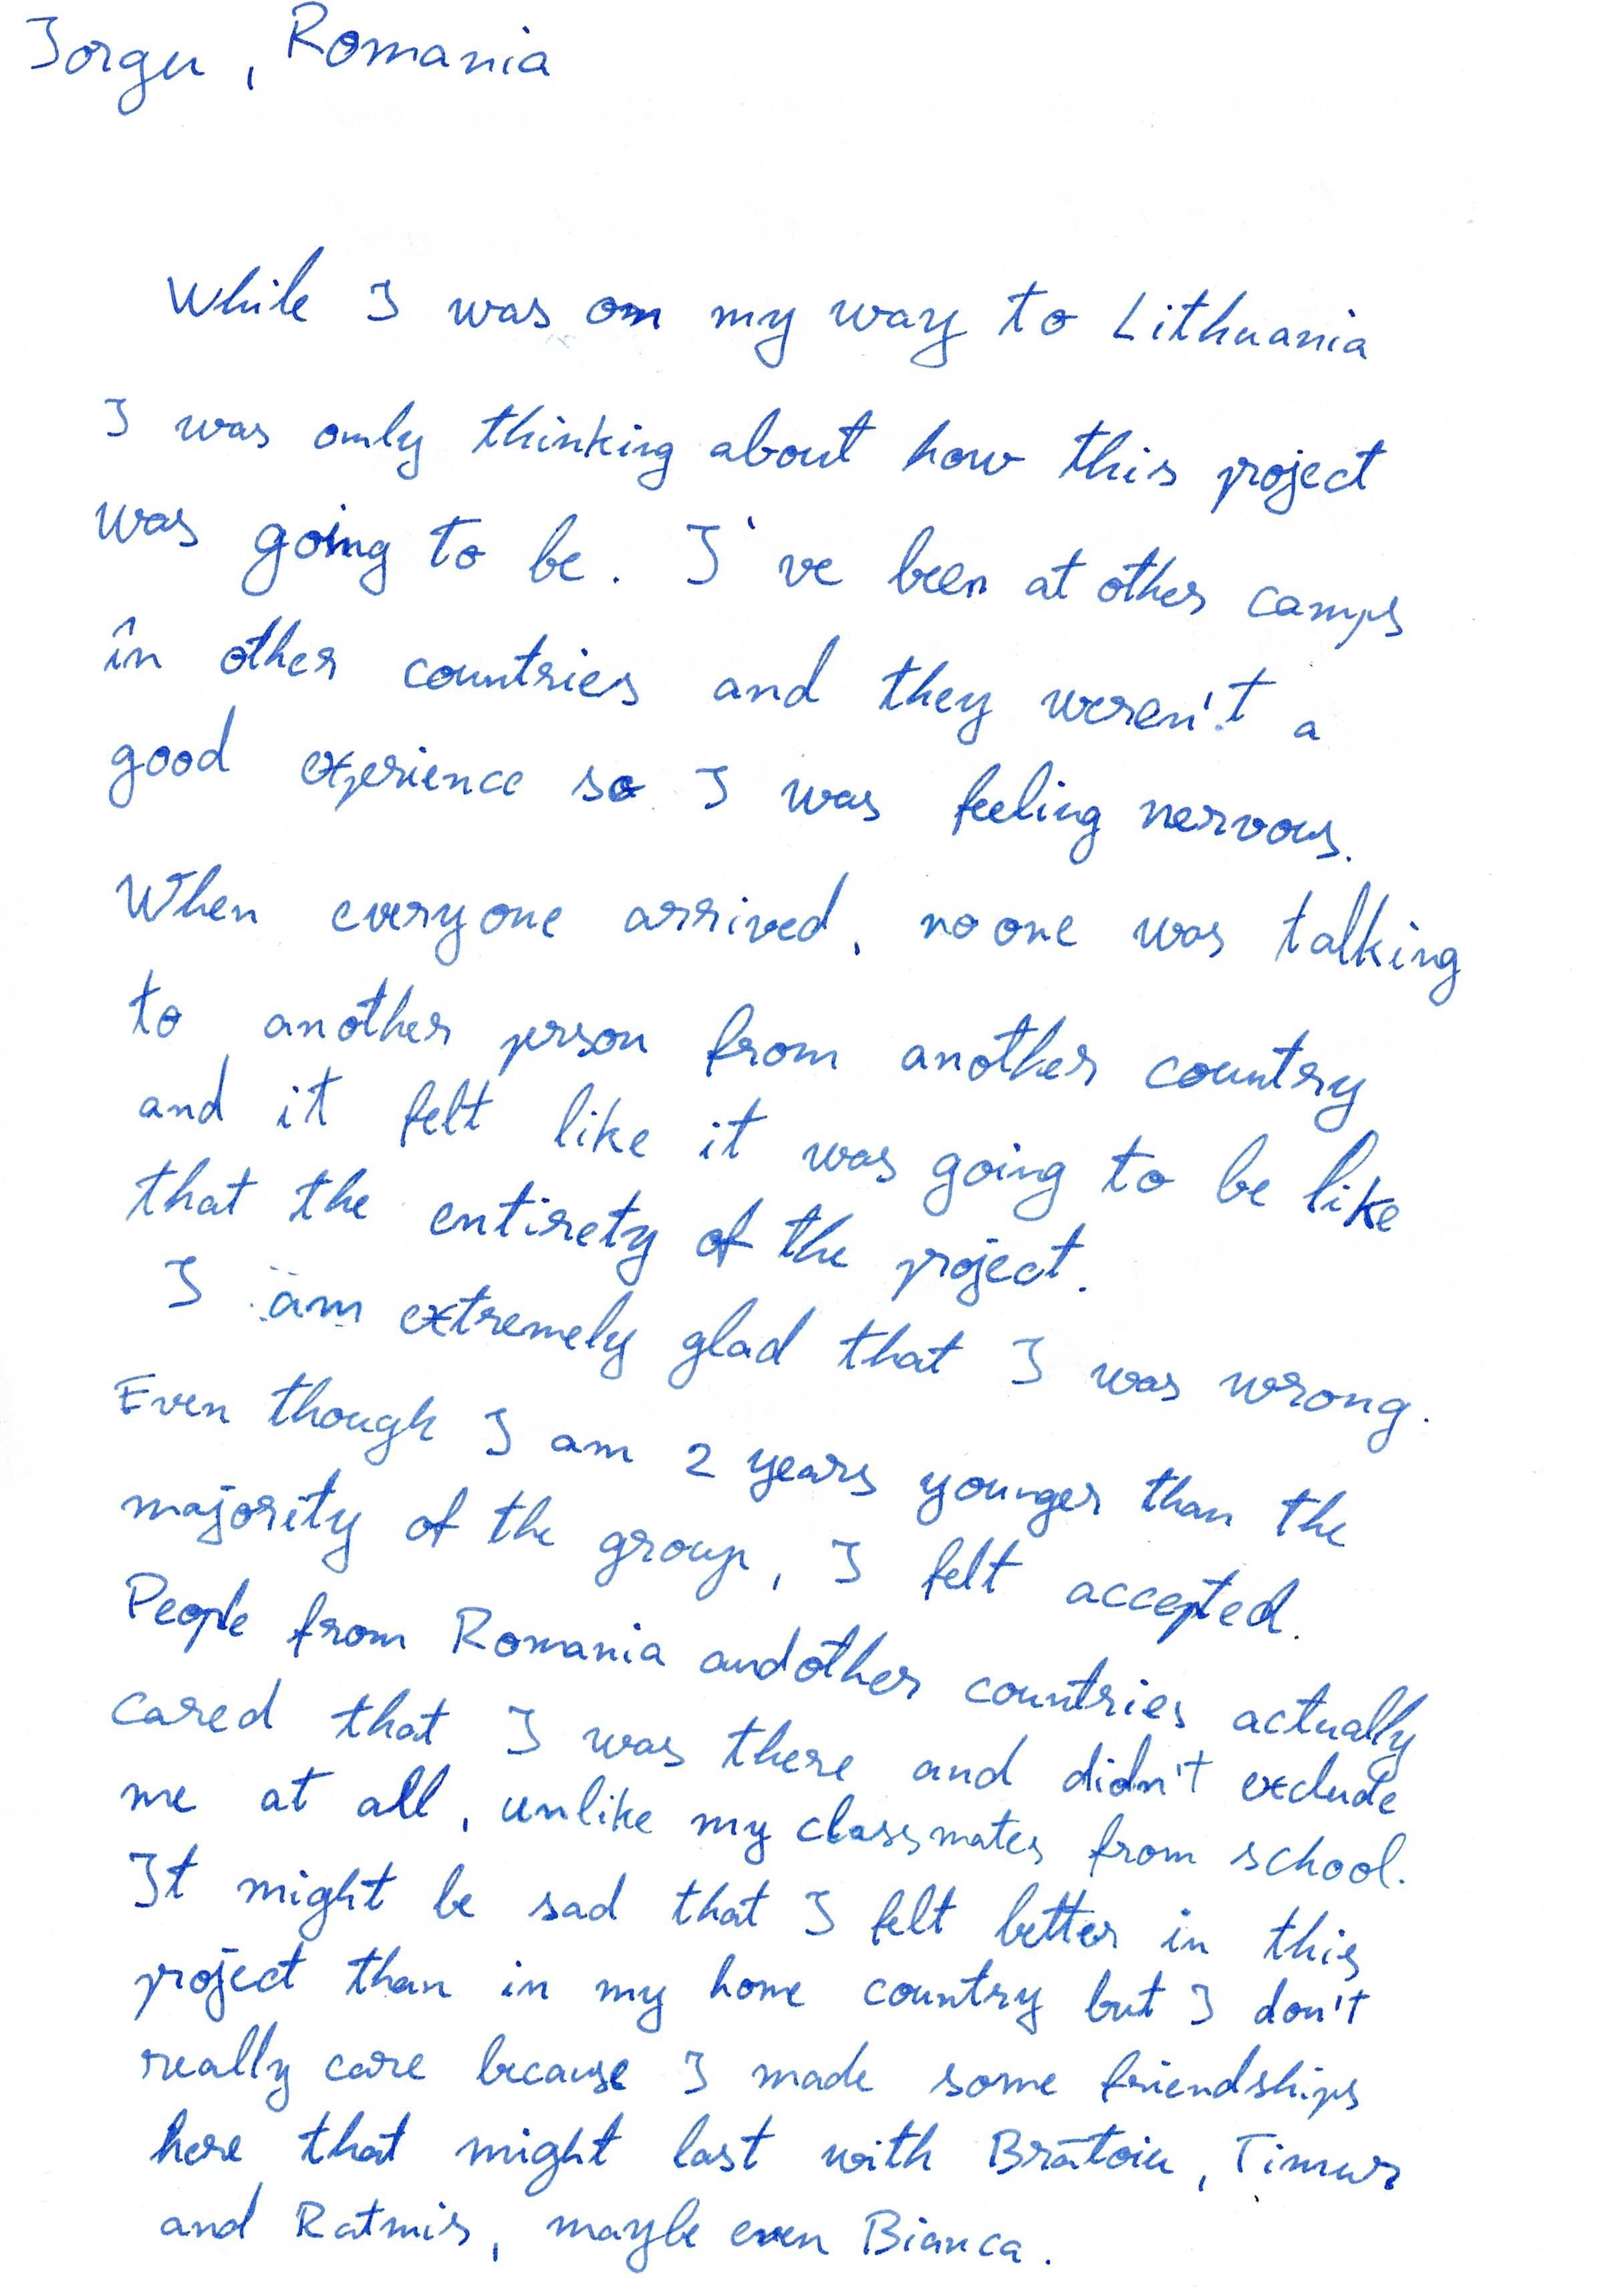 Iorgu, Romania
While I was on my way to Lithuania
I was only thinking about how this project
was going to be. I've been at other camps
în other countries and they weren't a
good experience so I was feeling nervous.
When everyone arrived, no one was talking
to another person from another country
and it felt like it was going to be like
that the entirety of the project.
I am extremely glad that I was wrong.
Even though I am 2 years younger than the
majority of the group, I felt accepted.
People from Romania and other countries actually
cared that I was there and didn't exclude
me at all, unlike my classmates from school.
It might be sad that I felt better in this
project than in my home country but I don't
really care because I made some friendships
here that might last with Brătoiu, Timur
and Ratmir, maybe even Bianca.